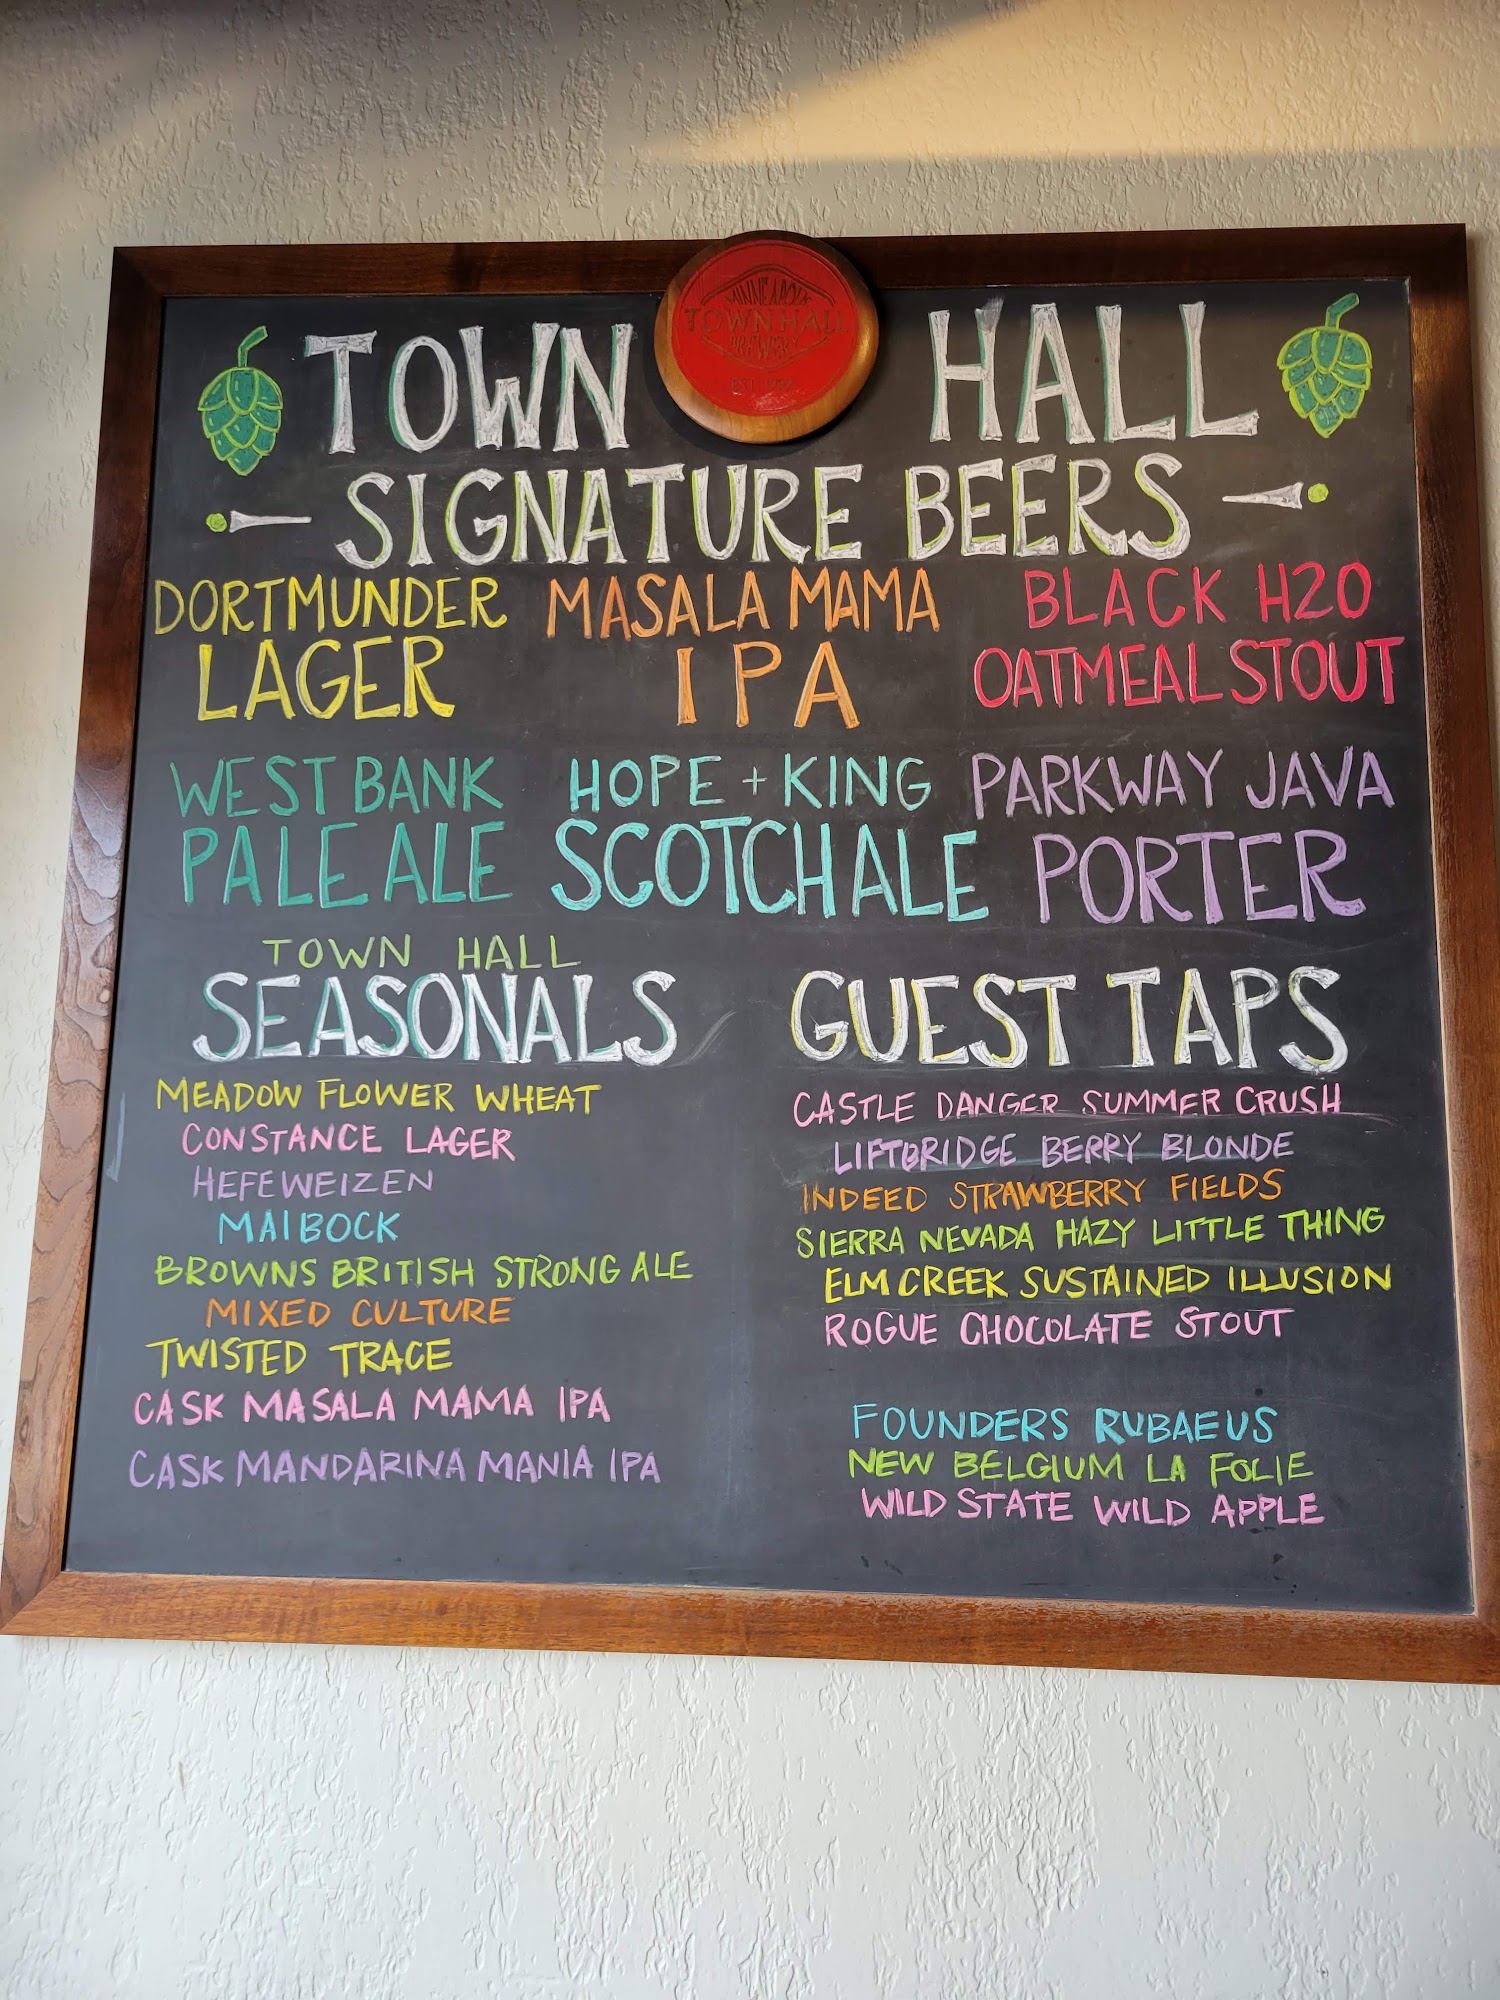 MINNEAPOLIS
TOWN HALL
BREWERY
EST. 1997
TOWN HALL
SIGNATURE BEERS
DORTMUNDER
LAGER
MASALA MAMA
IPA
BLACK H2O
OATMEAL STOUT
WEST BANK
PALE ALE
HOPE + KING
SCOTCH ALE
PARKWAY JAVA
PORTER
TOWN HALL
SEASONALS
MEADOW FLOWER WHEAT
CONSTANCE LAGER
HEFEWEIZEN
MAIBOCK
BROWNS BRITISH STRONG ALE
MIXED CULTURE
TWISTED TRACE
CASK MASALA MAMA IPA
CASK MANDARINA MANIA IPA
GUEST TAPS
CASTLE DANGER SUMMER CRUSH
LIFTBRIDGE BERRY BLONDE
INDEED STRAWBERRY FIELDS
SIERRA NEVADA HAZY LITTLE THING
ELM CREEK SUSTAINED ILLUSION
ROGUE CHOCOLATE STOUT
FOUNDERS RUBAEUS
NEW BELGIUM LA FOLIE
WILD STATE WILD APPLE